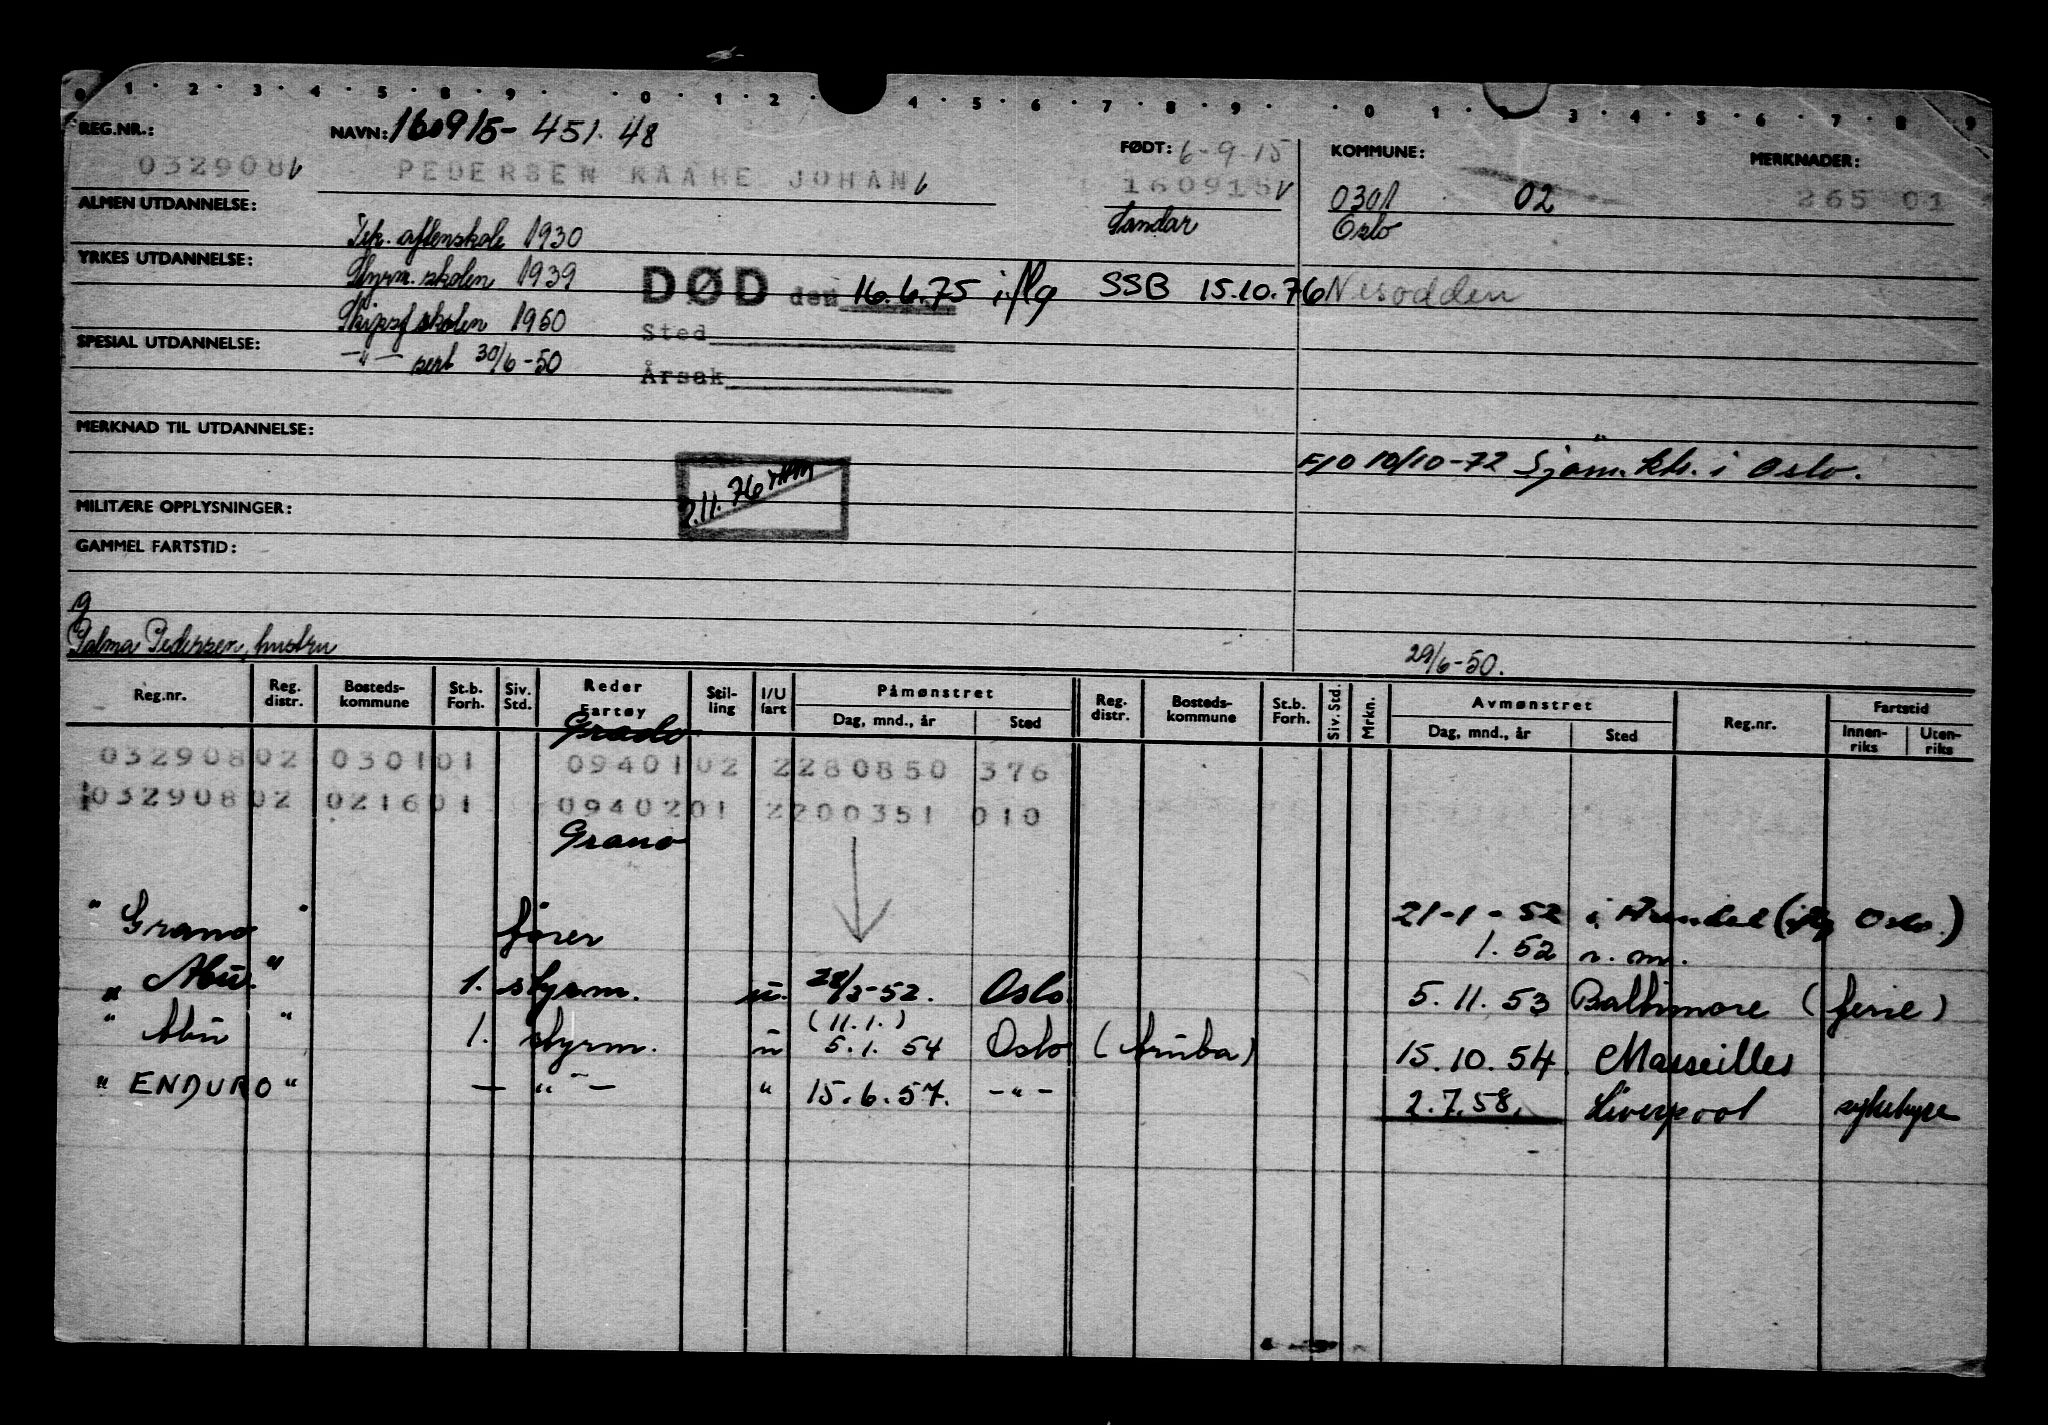 0 · 1 · 2 · 3 · 4 · 5 · 8 · 9 · · 0 · 1 · 2 · 4 · 5 · 6 · 7 · 8 · 9 · · 0 · 1 · 3 · 4 · 5 · 6 · 7 · 8 · 9
REG.NR.: NAVN: 160915- 451. 48 FØDT: 6-9-15 KOMMUNE: MERKNADER:
032908 PEDERSEN KAARE JOHAN 160915 0301 02 265 01
ALMEN UTDANNELSE: Sandar Oslo
Tek. aftenskole 1930
YRKES UTDANNELSE: Styrm. skolen 1939 DØD den 16.6.75 iflg SSB 15.10.76 Nesodden
Skipsf skolen 1950 Sted
SPESIAL UTDANNELSE: —"— sert 30/6-50
Årsak
MERKNAD TIL UTDANNELSE:
F10 10/10-72 Sjøm.ktr. i Oslo.
2.11.76
MILITÆRE OPPLYSNINGER:
GAMMEL FARTSTID:
g
Palma Pedersen, hustru 29/6-50.
Reg.nr. Reg. distr. Bosteds- kommune St.b. Forh. Siv. Std. Reder Fartøy Stil- ling I/U fart Påmønstret Dag, mnd., år Sted Reg. distr. Bosteds- kommune St.b. Forh. Siv. Std. Mrkn. Avmønstret Dag, mnd., år Sted Reg.nr. Fartstid Innen- riks Uten- riks
Grado
03290802 030101 0940102 2280850 376
03290802 021601 0940201 2200351 010
Grano
" Grano " fører 21-1-52 i Arendal (iflg Oslo.)
1.52 n.m.
" Abu. " 1. styrm. u. 28/3-52. Oslo 5.11.53 Baltimore (ferie)
(11.1.)
" Abu " 1. styrm. u 5.1.54 Oslo (Aruba) 15.10.54 Marseilles
" ENDURO " — " — " 15.6.57. -"- 2.7.58. Liverpool sykehyre